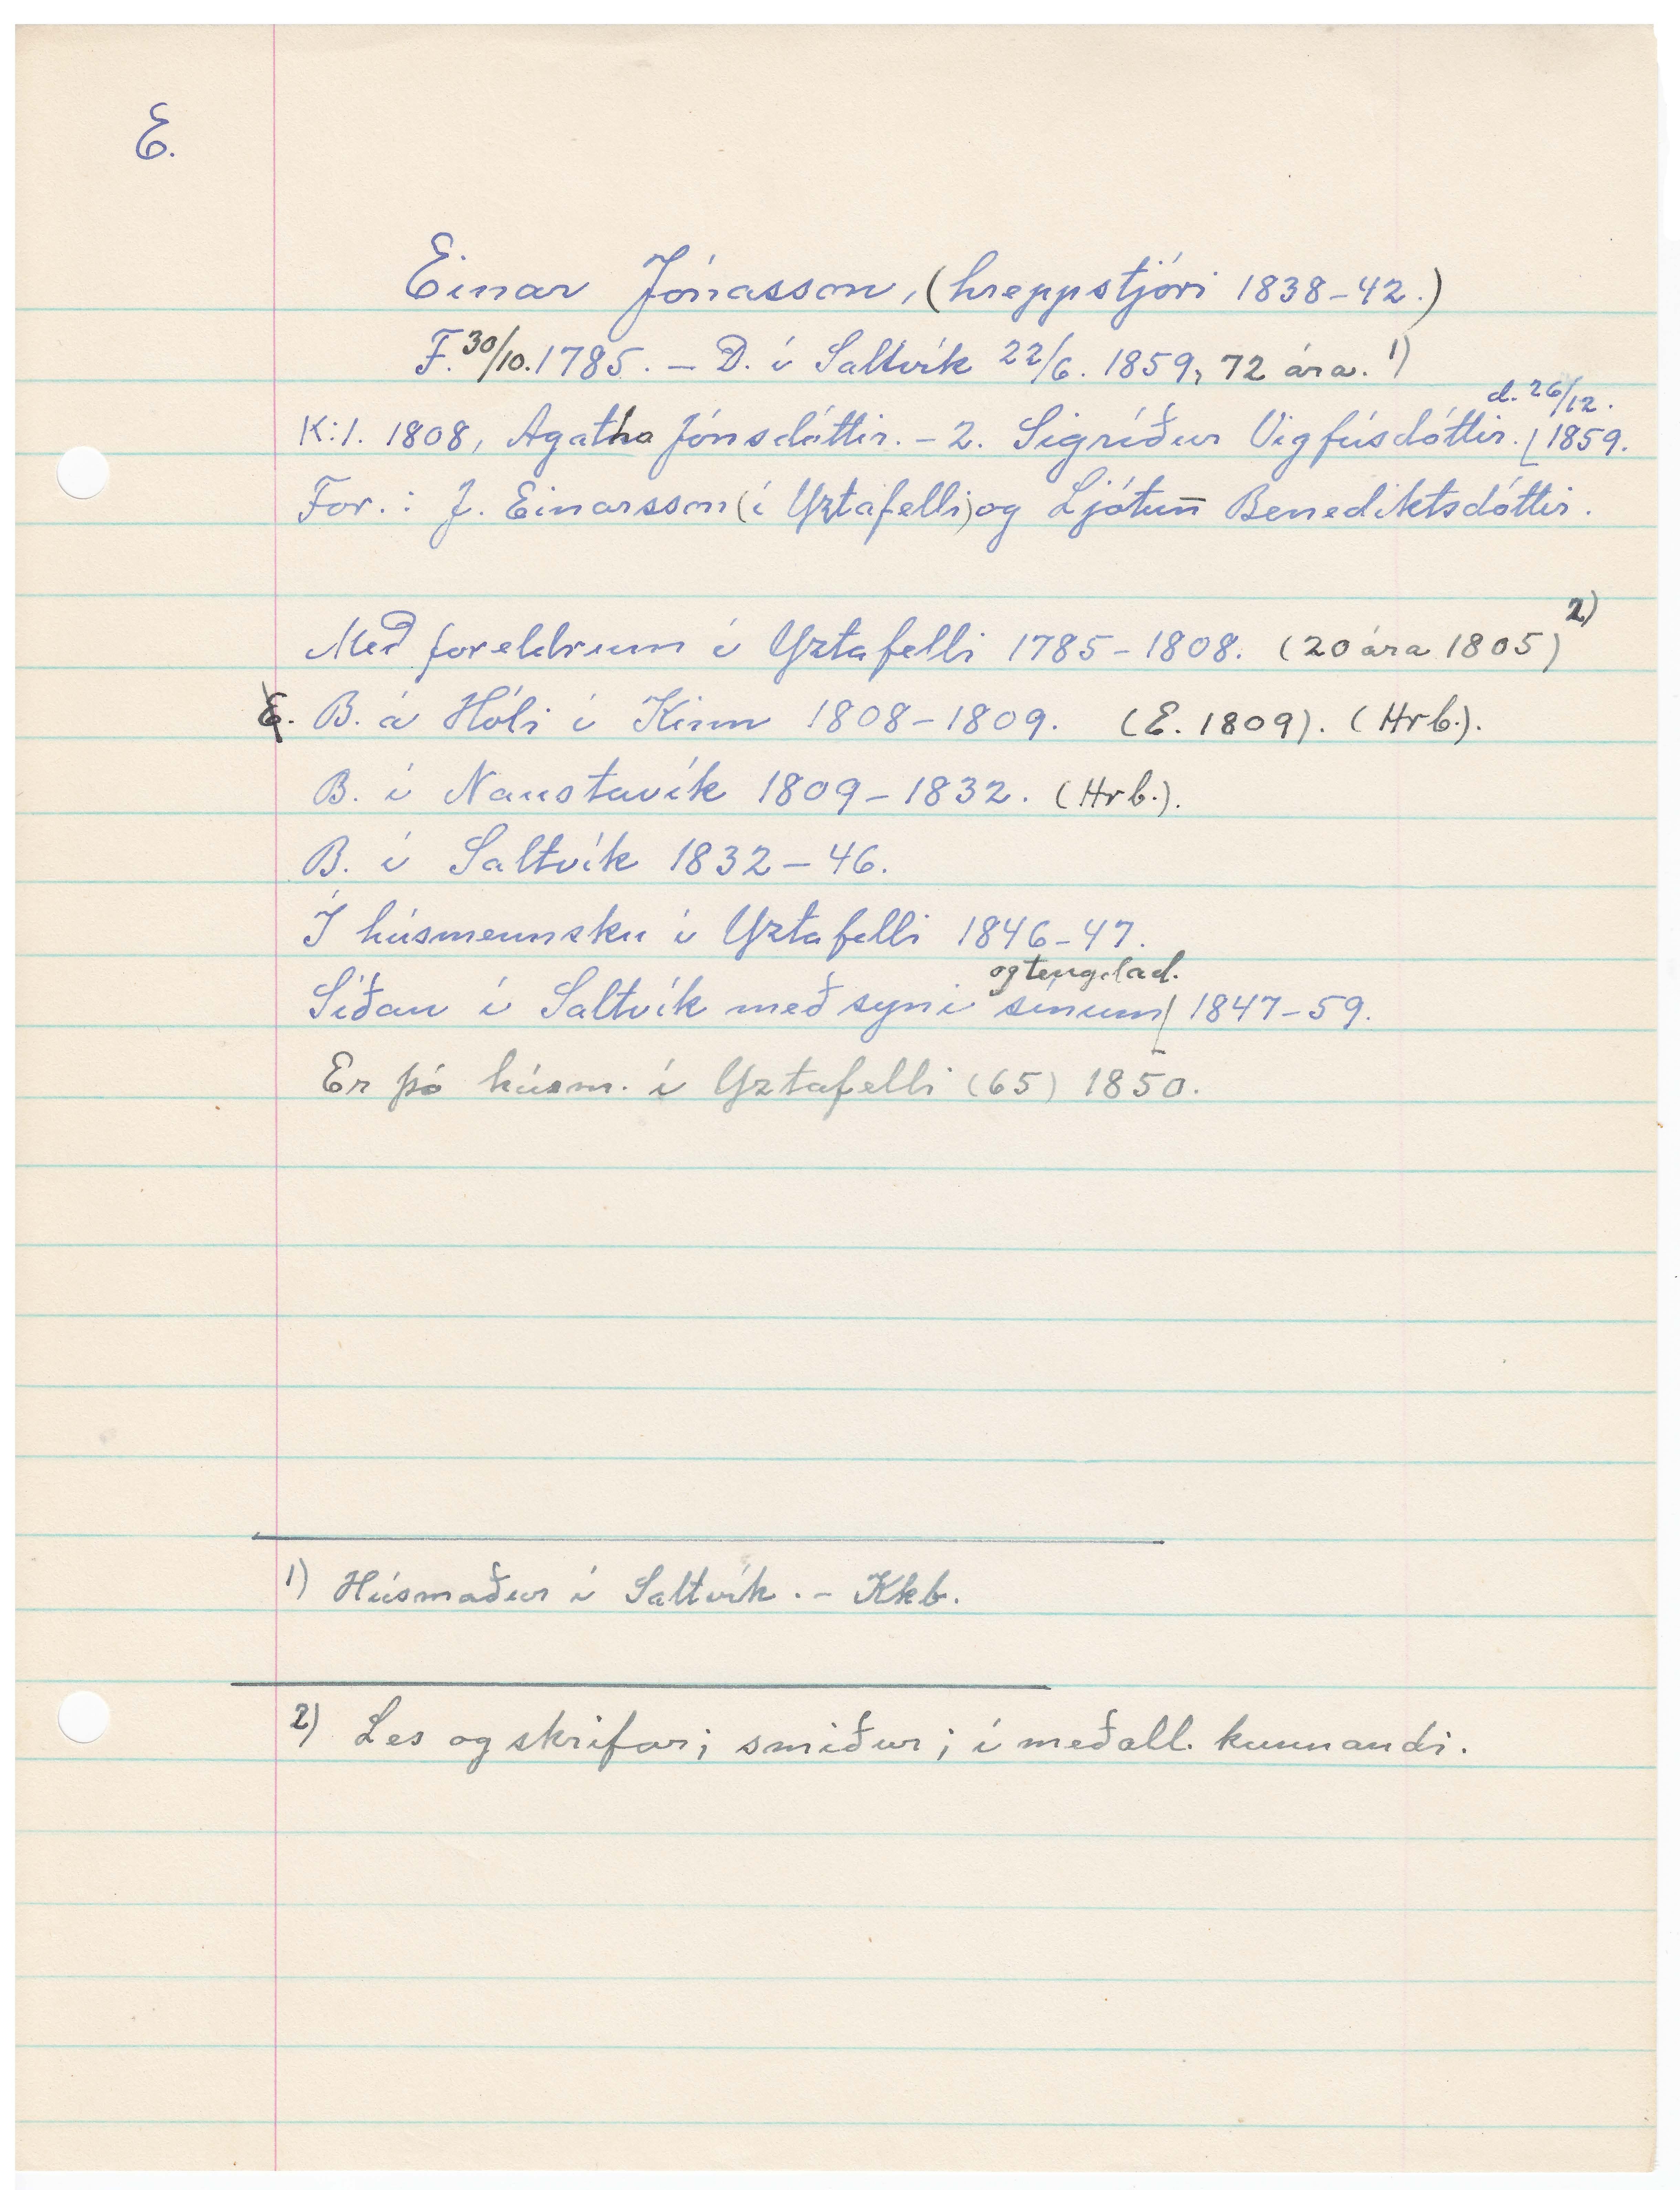 E.
Einar Jónasson, (hreppstjóri 1838-42.)
F. 30/10. 1785. – D. í Saltvík 22/6. 1859, 72 ára. 1)
d. 26/12.
K: 1. 1808, Agatha Jónsdóttir. – 2. Sigríður Vigfúsdóttir. ⌊1859.
For.: J. Einarsson (í Yztafelli) og Ljótun̄ Benediktsdóttir.
Með foreldrum í Yztafelli 1785-1808. (20 ára 1805) 2)
E. B. á Hóli í Kinn 1808-1809. (E. 1809). (Hrb.).
B. í Naustavík 1809-1832. (Hrb.).
B. í Saltvík 1832-46.
Í húsmennsku í Yztafelli 1846-47.
og tengdad.
Síðan í Saltvík með syni sínum⌊ 1847-59.
Er þó húsm. í Yztafelli (65) 1850.
1) Húsmaður í Saltvík. – Kkb.
2) Les og skrifar; smiður; í meðall. kunnandi.